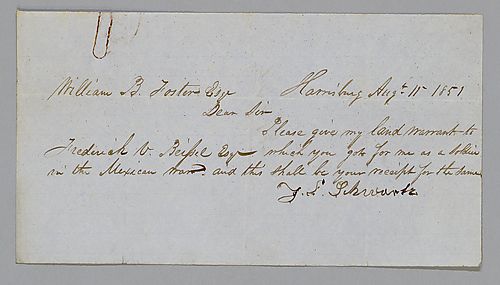 William B. Foster Esqr Harrisburg Augt 15 1851
Dear Sir
Please give my land warrant to
Frederick V. Beisel Esqr which you got for me as a soldier
in the Mexican war and this shall be your receipt for the same
Schwartz